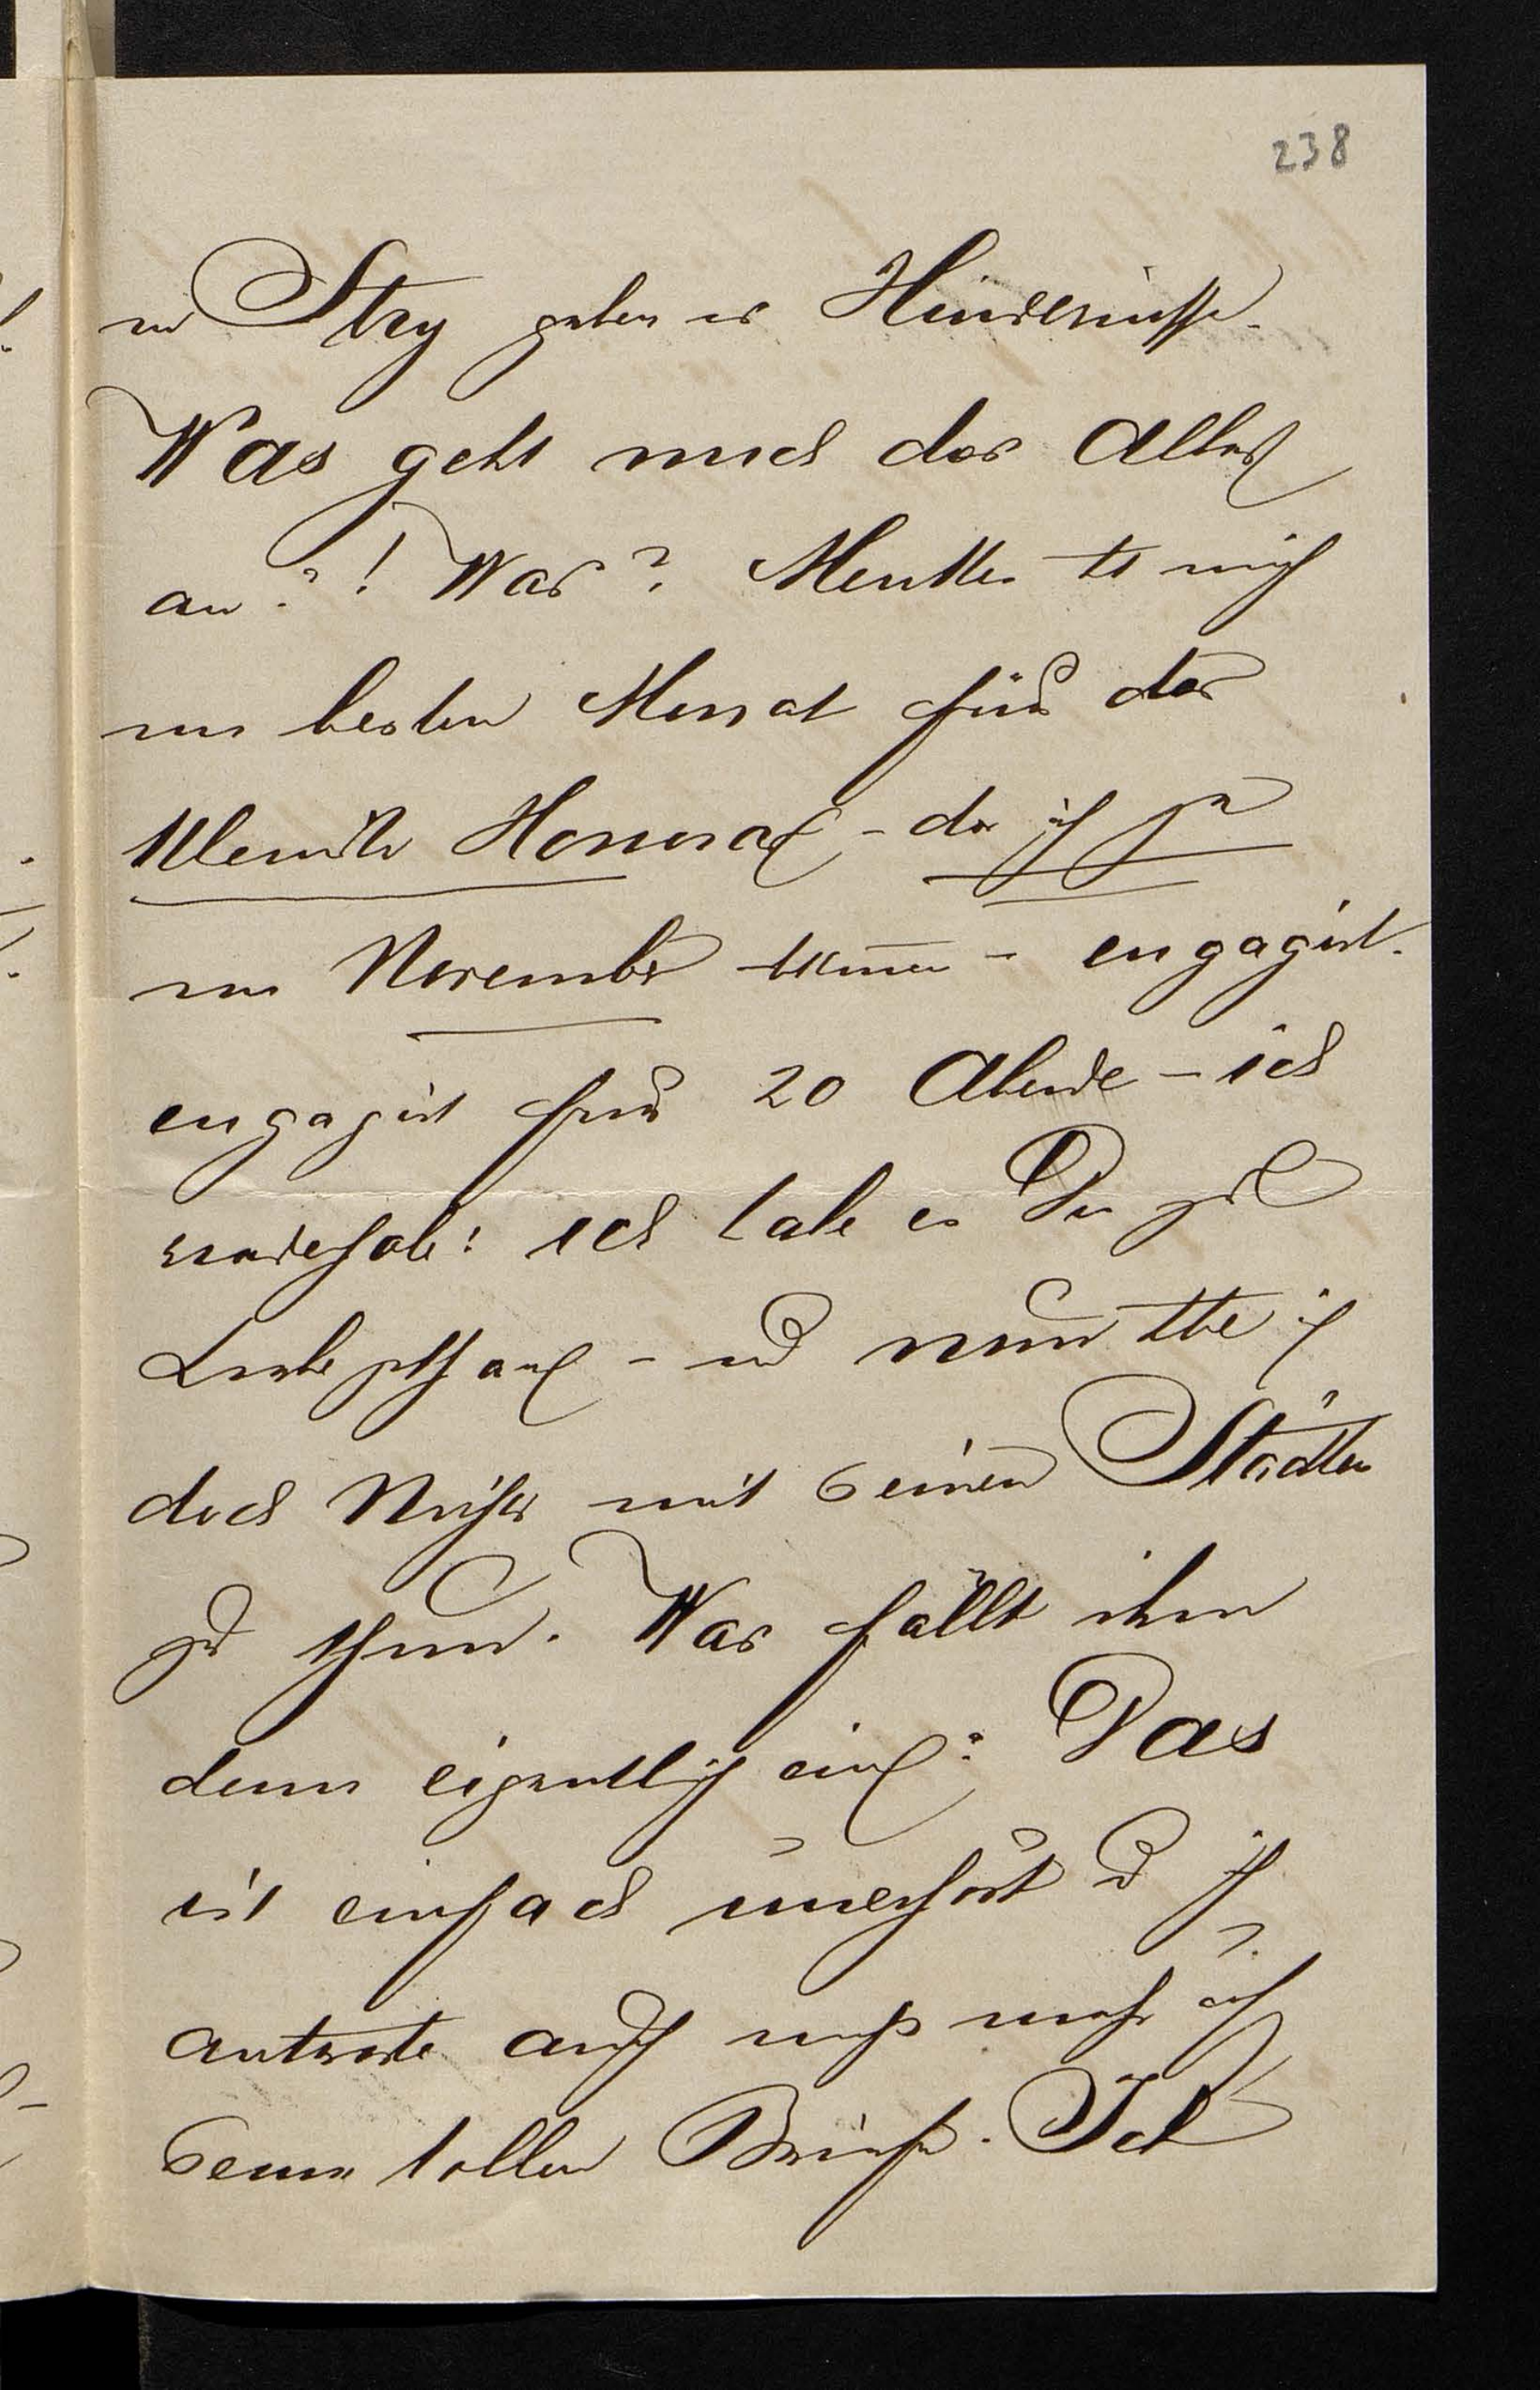 238
in Stry gaben es Hindernisse.
Was geht mich das Alles
an?! Was? Menkes hat mich
im besten Monat für das
kleinste Honorar – da ich ja
im November komme – engagirt.
engagirt für 20 Abende – ich
wiederhole: ich habe es Du
– und nun habe ich
doch Nichts mit seinen Städten
zu thun. Was fällt ihm
denn eigentlich ein? Das
ist einfach unerhört u ich
antworte auch nicht mehr auf
seine tollen Briefe. Ich